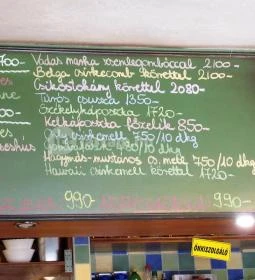 700- Vadas marha zsemlegombóccal 2100-
Belga csirkecomb körettel 2100-
Csikóstokány körettel 2080-
Túrós csusza 1350-
Székelykáposzta 1720-
Kelkáposzta főzelék 850-
csirkemell 750/10 dkg
/10 dkg
Hagymás-mustáros cs. mell 750/10 dkg
Hawaii csirkemell körettel 1720-
990- 990-
ÖNKISZOLGÁLÓ